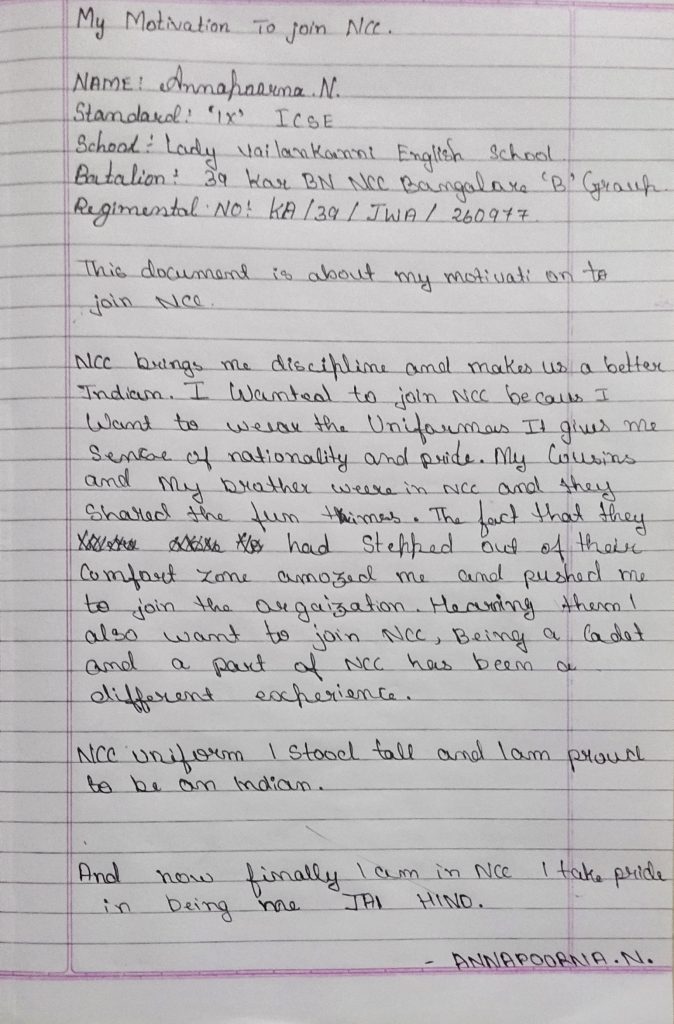 My Motivation To join NCC.
NAME: Annapoorna.N.
Standard: 'IX' ICSE
School: Lady Vailankanni English School
Batalion: 39 Kar BN NCC Bangalore 'B' Group.
Regimental NO: KA/39/JWA/260977.
This document is about my motivati on to
join NCC.
NCC brings me discipline and makes us a better
Indian. I Wanted to join NCC becaus I
Want to wear the Uniformas It gives me
Sense of nationality and pride. My Cousins
and My brother weere in NCC and they
Shared the fun times. The fact that they
had Stepped out of their
Comfort zone amozed me and pushed me
to join the orgaization. Hearning them I
also want to join NCC, Being a Cadet
and a part of NCC has been a
different experience.
NCC uniform I Stood tall and I am proud
to be an Indian.
And now finally I am in NCC I take pride
in being me JAI HIND.
- ANNAPOORNA.N.